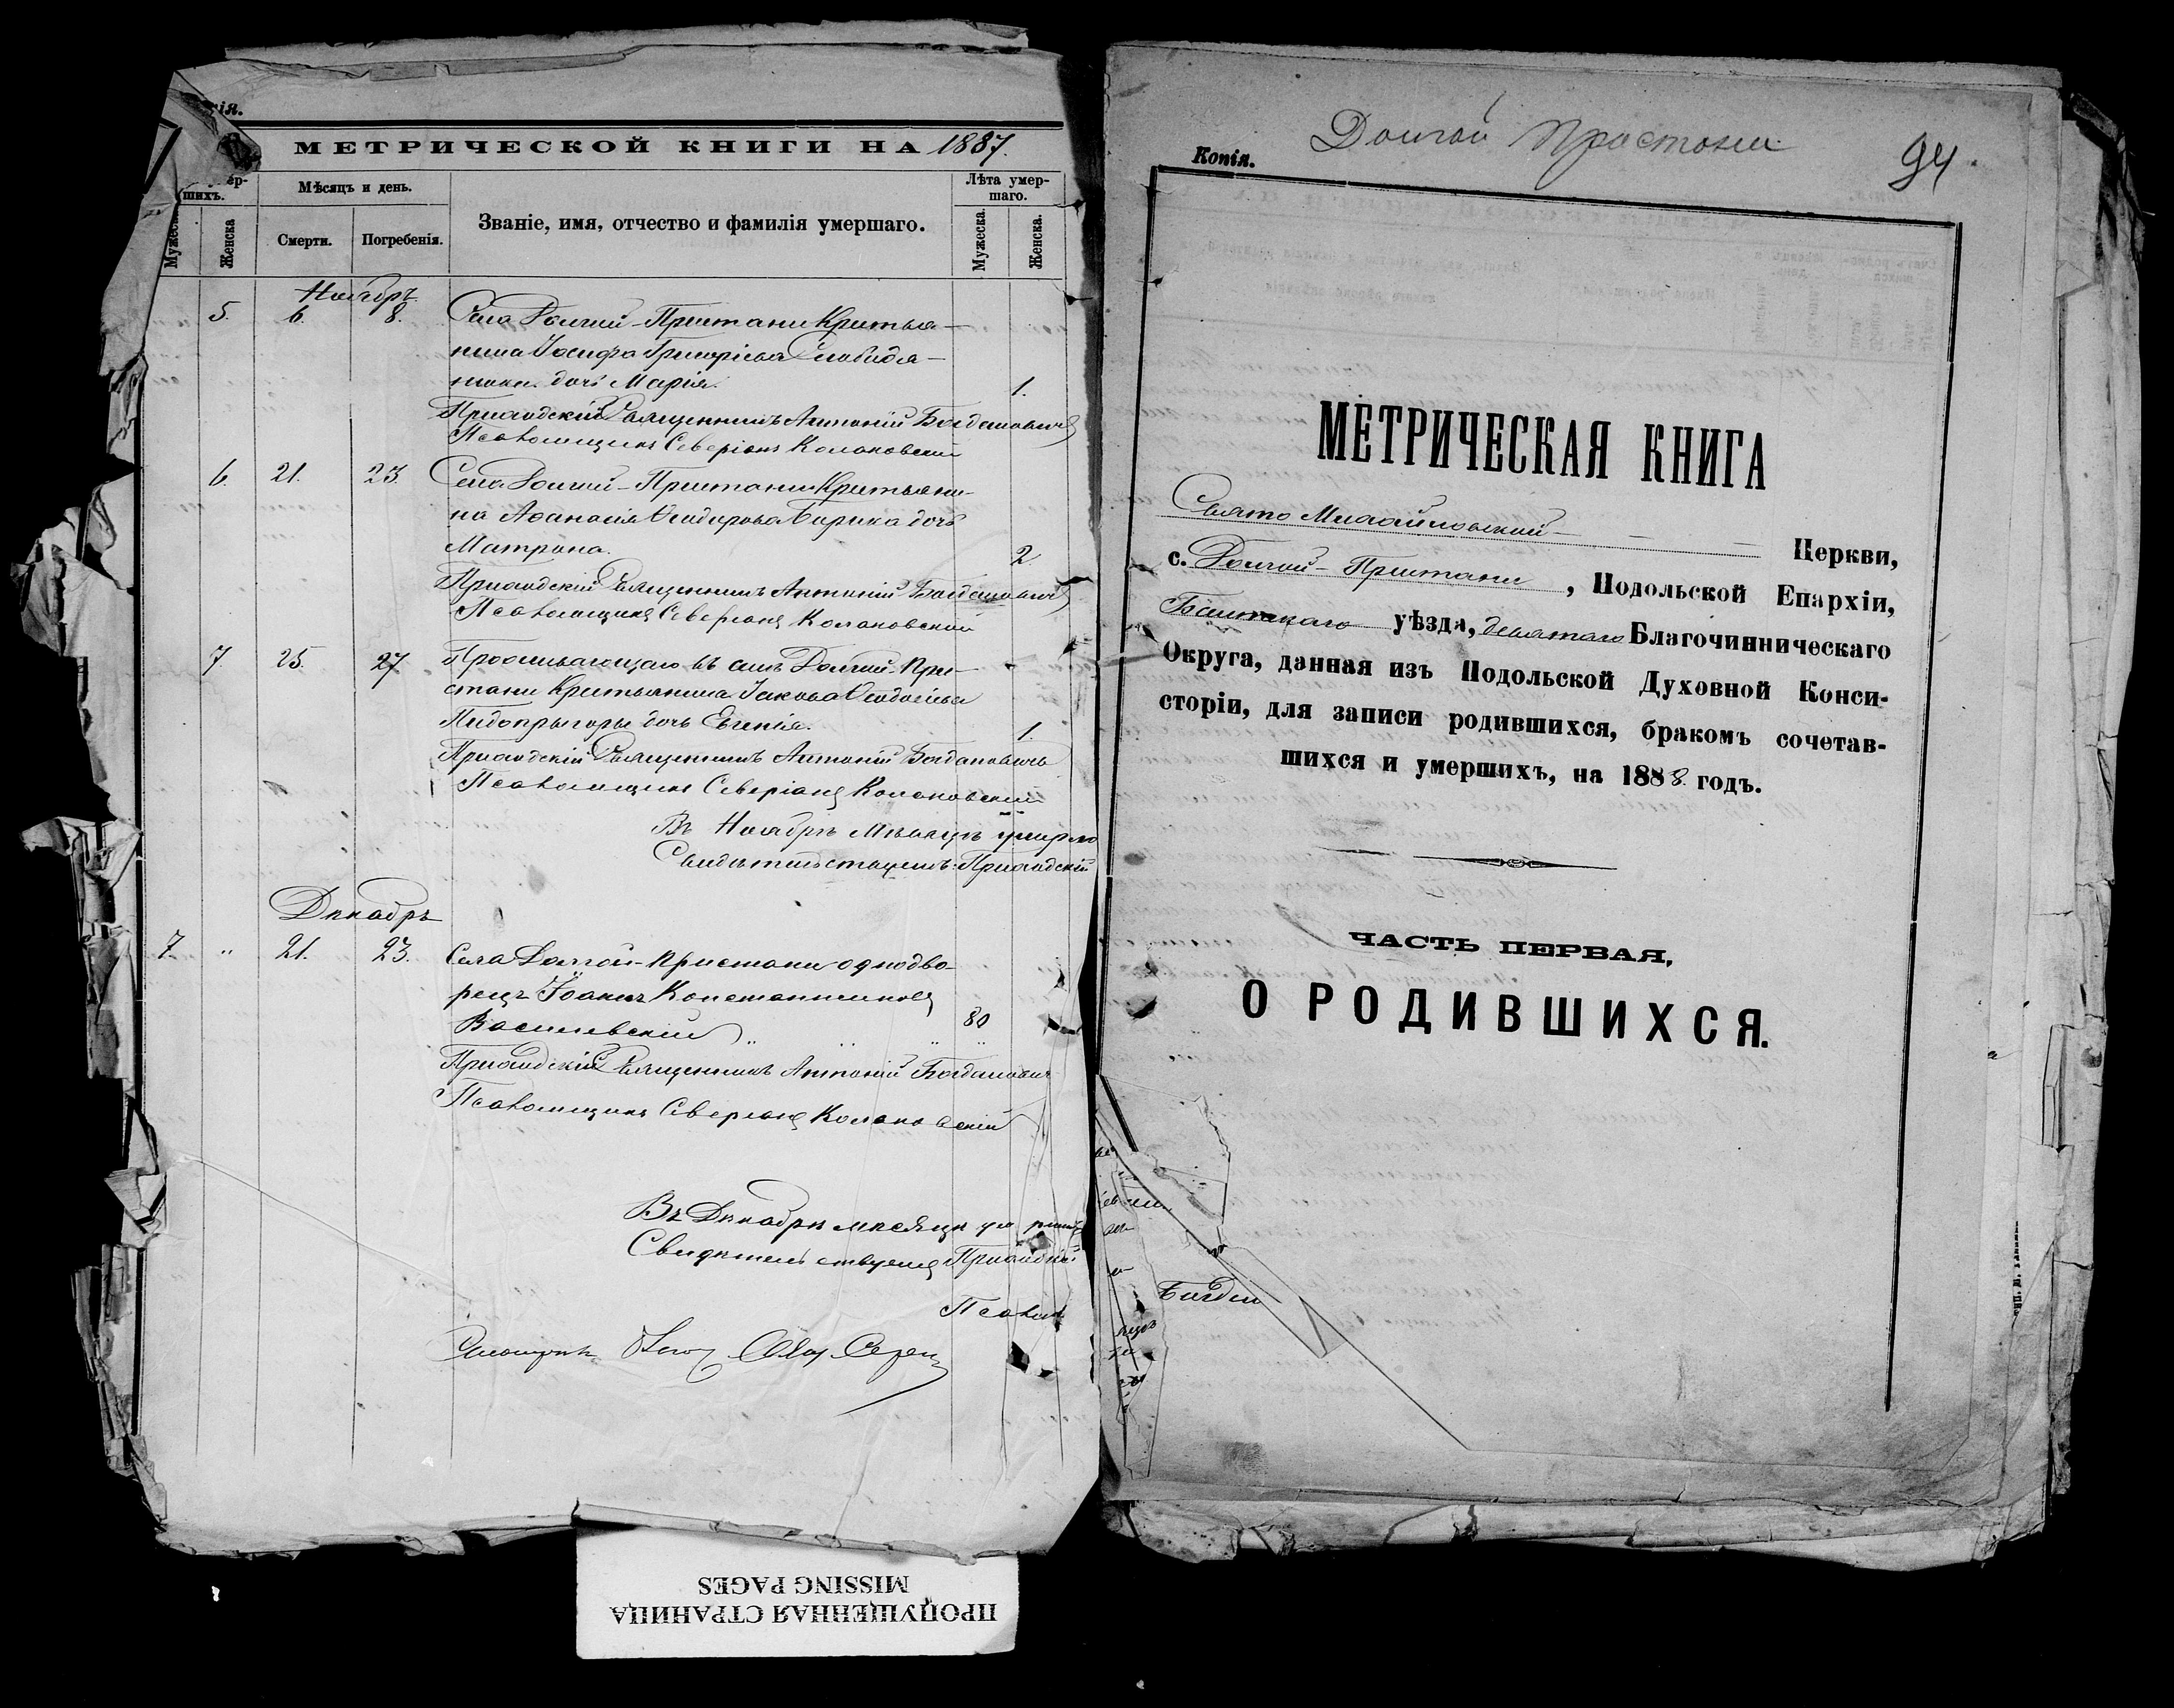 МЕТРИЧЕСКОЙ КНИГИ НА 1887.
шихъ.
Мѣсяцъ и день.
Званіе, имя, отчество и фамилія умершаго.
Лѣта умер-
шаго.
Женска
Смерти.
Погребенія.
Мужеска.
Женска.
Ноябрь
5. 6. 8. Села Долгой-Пристани Крестья-
нина Іосифа Григоріева Слободя-
нюка дочь Марія. 1.
Приходскій Священникъ Антоній Богдановичъ
Псаломщикъ Северіанъ Колаковскій
6. 21. 23. Села Долгой-Пристани Крестьяни-
на Аѳанасія Ѳеодорова дочь
Матрона. 2.
Приходскій Священникъ Антоній Богдановичъ
Псаломщикъ Северіанъ Колаковскій
7 25. 27 Проживающаго въ селѣ Долгой-При-
стани Крестьянина Іакова Ѳеодосіева
Пидопрыгоры дочь Евгенія. 1.
Приходскій Священникъ Антоній Богдановичъ
Псаломщикъ Северіанъ Колаковскій
Въ Ноябрѣ Мѣсяцѣ умерло
Свидѣтельствуемъ: Приходскій
Декабрь
7. " 21. 23. Села Долгой-Пристани однодво-
рецъ Іоаннъ Константиновъ
Василевскій 80
Приходскій Священникъ Антоній Богдановичъ
Псаломщикъ Северіанъ Колаковскій
Въ Декабрѣ мѣсяцѣ
Свидѣтельствуемъ Приходскій
Псалом
ПРОПУЩЕННАЯ СТРАНИЦА
MISSING PAGES
Долгой Пристани
94.
Копія.
МЕТРИЧЕСКАЯ КНИГА
Свято Михайловской Церкви,
с. Долгой-Пристани, Подольской Епархіи,
Балтскаго уѣзда, девятаго Благочинническаго
Округа, данная изъ Подольской Духовной Конси-
сторіи, для записи родившихся, бракомъ сочетав-
шихся и умершихъ, на 1888 годъ.
ЧАСТЬ ПЕРВАЯ,
О РОДИВШИХСЯ.
Богдан